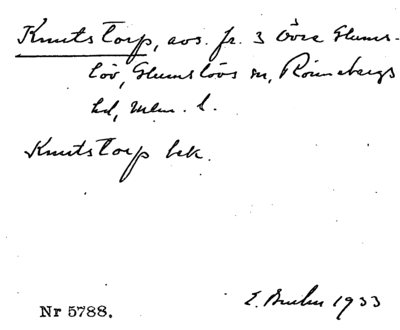 Knutstorp, avs. fr. 3 Övra Glums-
löv, Glumslövs sn, Rönnebergs
hd, Malm. l.
Knutstorp bek.
Nr 5788.
E. 1933